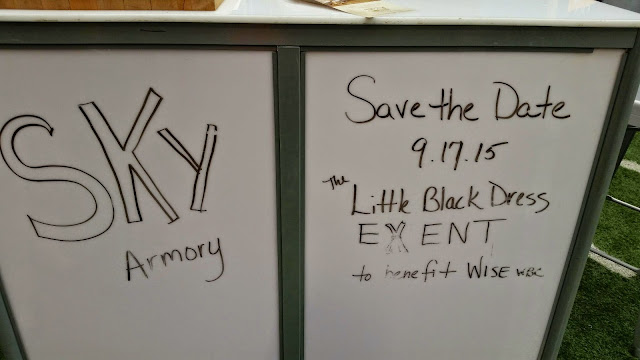 SKY
Armory
Save the Date
9.17.15
The Little Black Dress
EXENT
to benefit WISE WBC